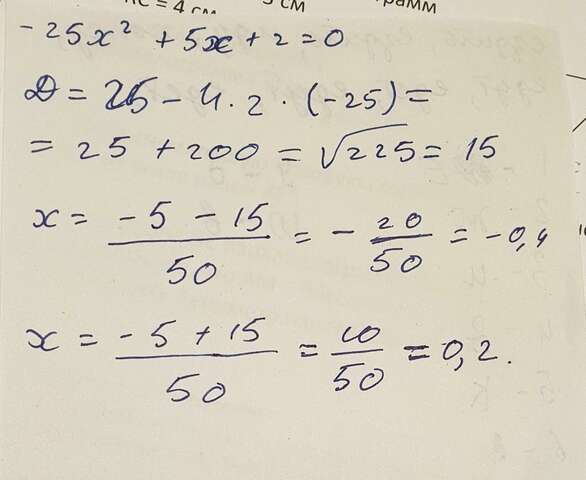 = 4 см
см
рамм
-25x² + 5x + 2 = 0
D = 25 - 4 · 2 · (-25) =
= 25 + 200 = √225 = 15
x = (-5 - 15)/50 = -20/50 = -0,4
x = (-5 + 15)/50 = 10/50 = 0,2.